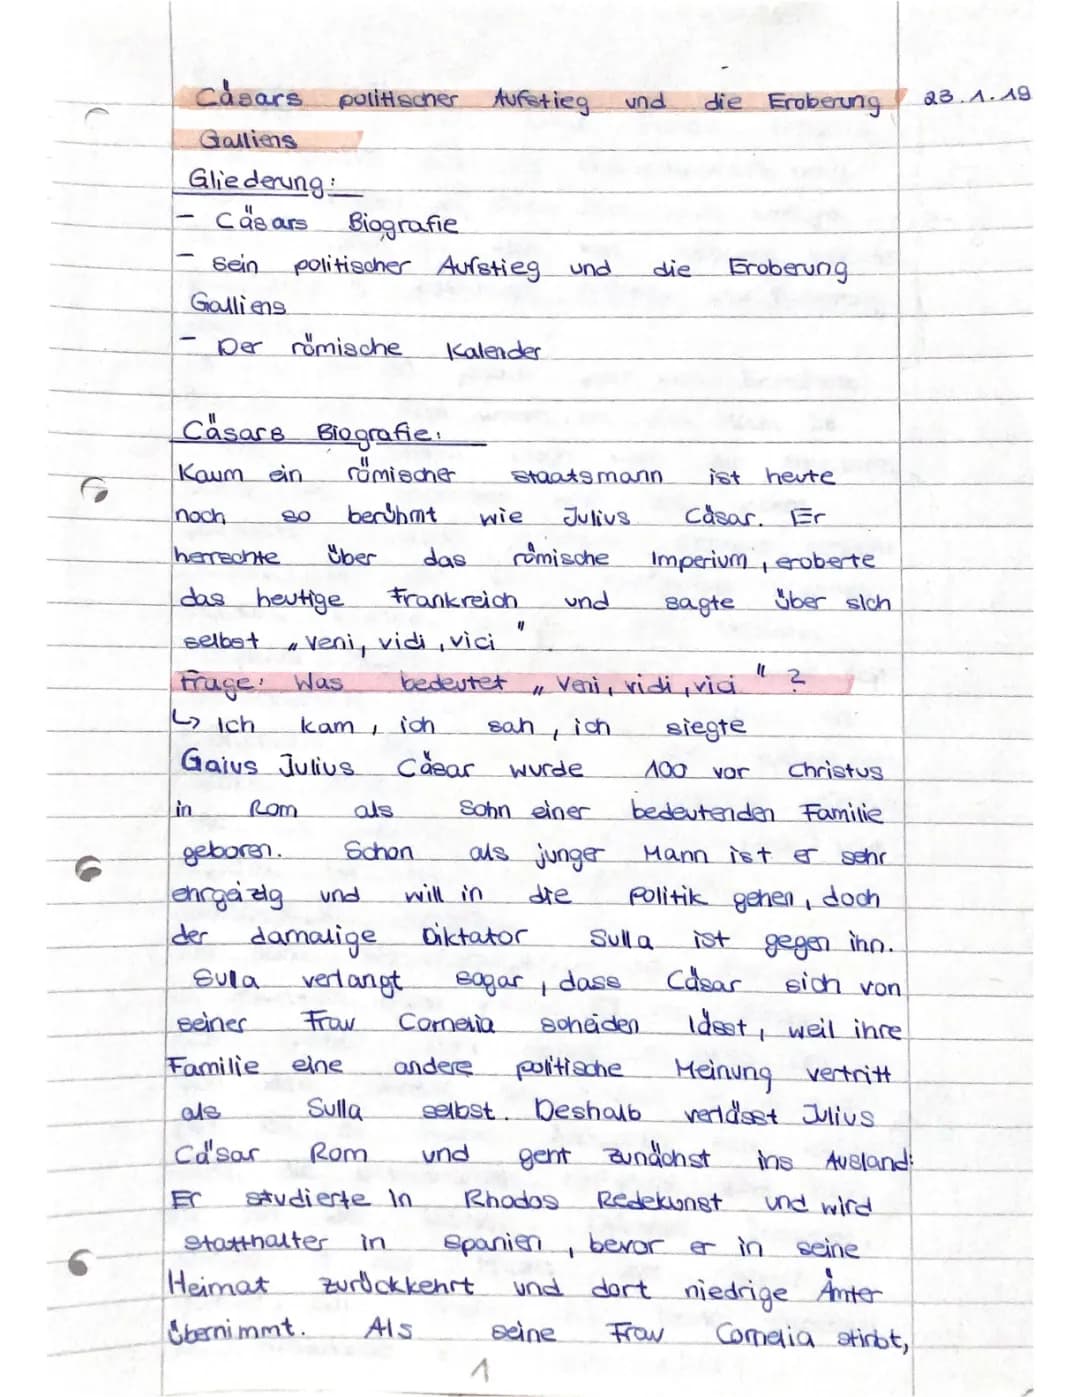 Cäsars politischer Aufstieg und die Eroberung 23.1.19
Galliens
Gliederung:
- Cäsars Biografie
- Sein politischer Aufstieg und die Eroberung
Galliens
- Der römische Kalender
Cäsars Biografie:
Kaum ein römischer Staatsmann ist heute
noch so berühmt wie Julius Cäsar. Er
herrschte über das römische Imperium, eroberte
das heutige Frankreich und sagte über sich
selbst „veni, vidi, vici".
Frage: Was bedeutet „Veni, vidi, vici"?
↳ Ich kam, ich sah, ich siegte
Gaius Julius Cäsar wurde 100 vor Christus
in Rom als Sohn einer bedeutenden Familie
geboren. Schon als junger Mann ist er sehr
ehrgeizig und will in die Politik gehen, doch
der damalige Diktator Sulla ist gegen ihn.
Sulla verlangt sogar, dass Cäsar sich von
seiner Frau Cornelia scheiden lässt, weil ihre
Familie eine andere politische Meinung vertritt
als Sulla selbst. Deshalb verlässt Julius
Cäsar Rom und geht zunächst ins Ausland:
Er studierte in Rhodos Redekunst und wird
Statthalter in Spanien, bevor er in seine
Heimat zurückkehrt und dort niedrige Ämter
übernimmt. Als seine Frau Cornelia stirbt,
1